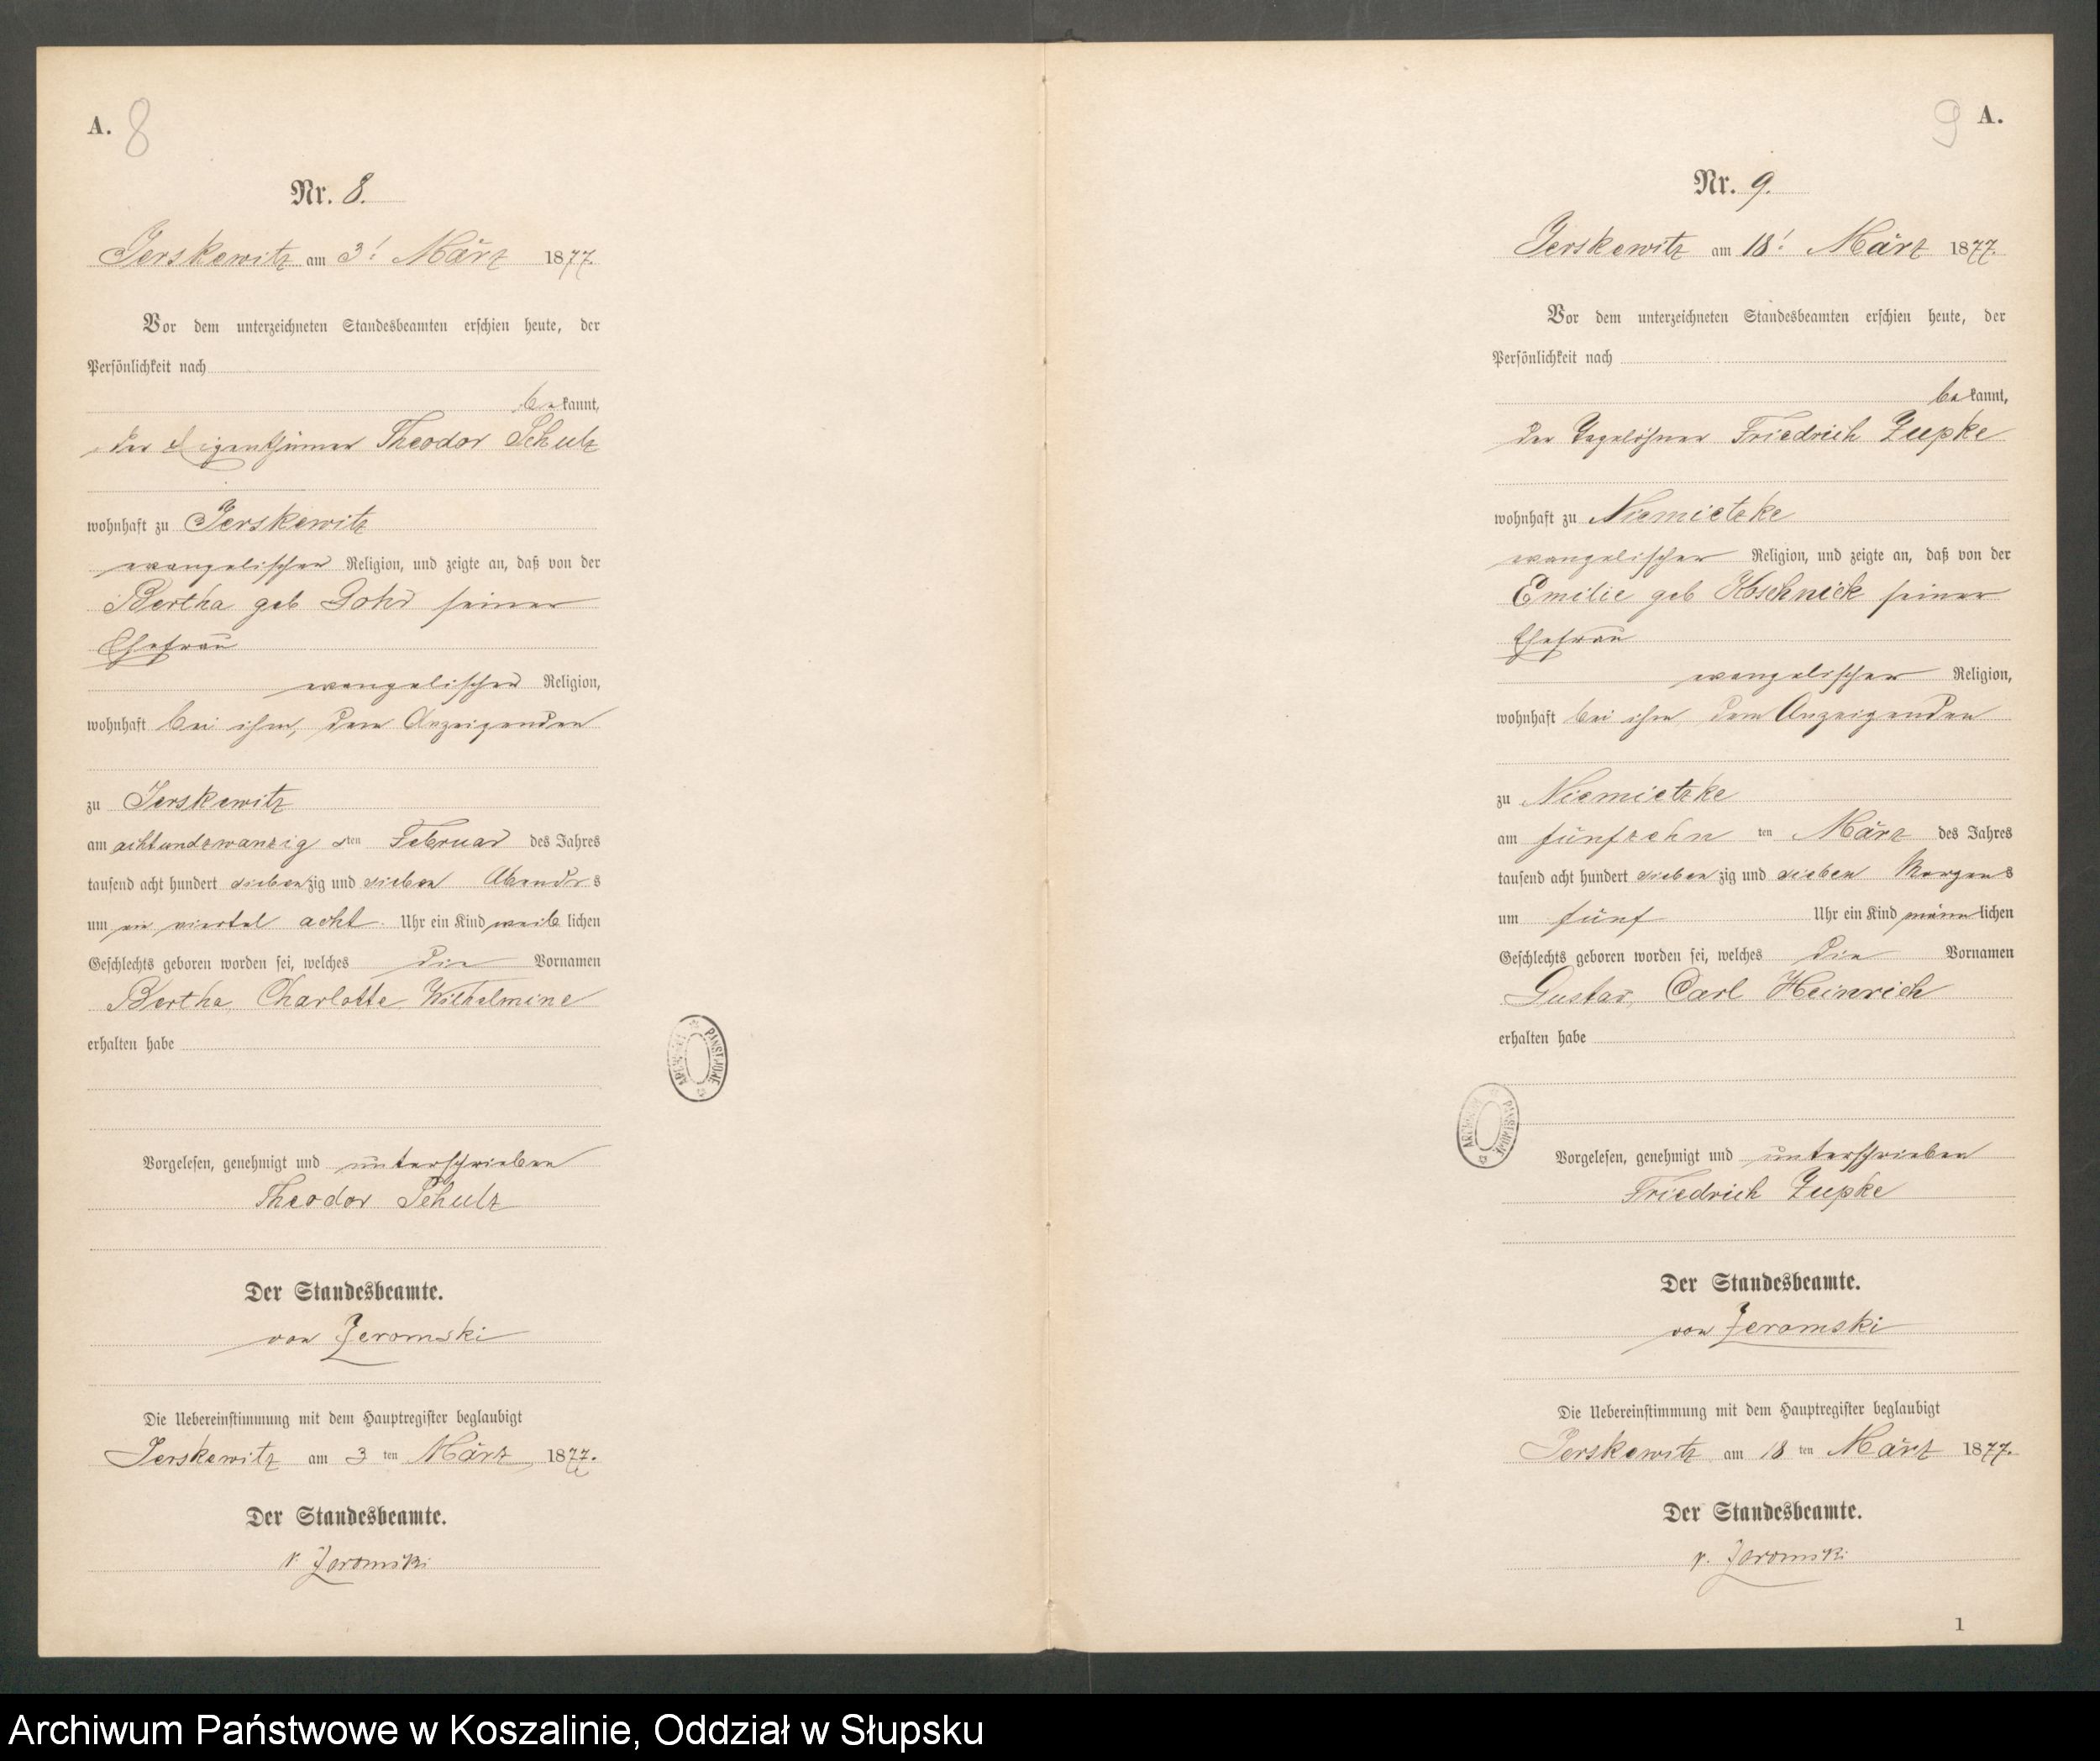 A. 8
Nr. 8.
Jerskewitz am 3! März 1877.
Vor dem unterzeichneten Standesbeamten erschien heute, der
Persönlichkeit nach
bekannt,
der Eigenthümer Theodor Schulz
wohnhaft zu Jerskewitz
evangelischer Religion, und zeigte an, daß von der
Bertha geb Gohr seiner
Ehefrau
evangelischer Religion,
wohnhaft bei ihm, dem Anzeigenden
zu Jerskewitz
am achtundzwanzigsten Februar des Jahres
tausend acht hundert siebenzig und sieben Abends
um ein viertel acht Uhr ein Kind weiblichen
Geschlechts geboren worden sei, welches die Vornamen
Bertha, Charlotte Wilhelmine
erhalten habe
Vorgelesen, genehmigt und unterschrieben
Theodor Schulz
Der Standesbeamte.
von Zeromski
Die Uebereinstimmung mit dem Hauptregister beglaubigt
Jerskewitz am 3 ten März 1877.
Der Standesbeamte.
v. Zeromski
ARCHIWUM PAŃSTWOWE
9 A.
Nr. 9.
Jerskewitz am 18! März 1877.
Vor dem unterzeichneten Standesbeamten erschien heute, der
Persönlichkeit nach
bekannt,
der Tagelöhner Friedrich Zupke
wohnhaft zu Niemietzke
evangelischer Religion, und zeigte an, daß von der
Emilie geb Koschnick seiner
Ehefrau
evangelischer Religion,
wohnhaft bei ihm dem Anzeigenden
zu Niemietzke
am fünfzehn ten März des Jahres
tausend acht hundert siebenzig und sieben Morgens
um fünf Uhr ein Kind männlichen
Geschlechts geboren worden sei, welches die Vornamen
Gustav, Carl Heinrich
erhalten habe
Vorgelesen, genehmigt und unterschrieben
Friedrich Zupke
Der Standesbeamte.
von Zeromski
Die Uebereinstimmung mit dem Hauptregister beglaubigt
Jerskewitz am 18 ten März 1877.
Der Standesbeamte.
v. Zeromski
1
ARCHIWUM PAŃSTWOWE
Archiwum Państwowe w Koszalinie, Oddział w Słupsku